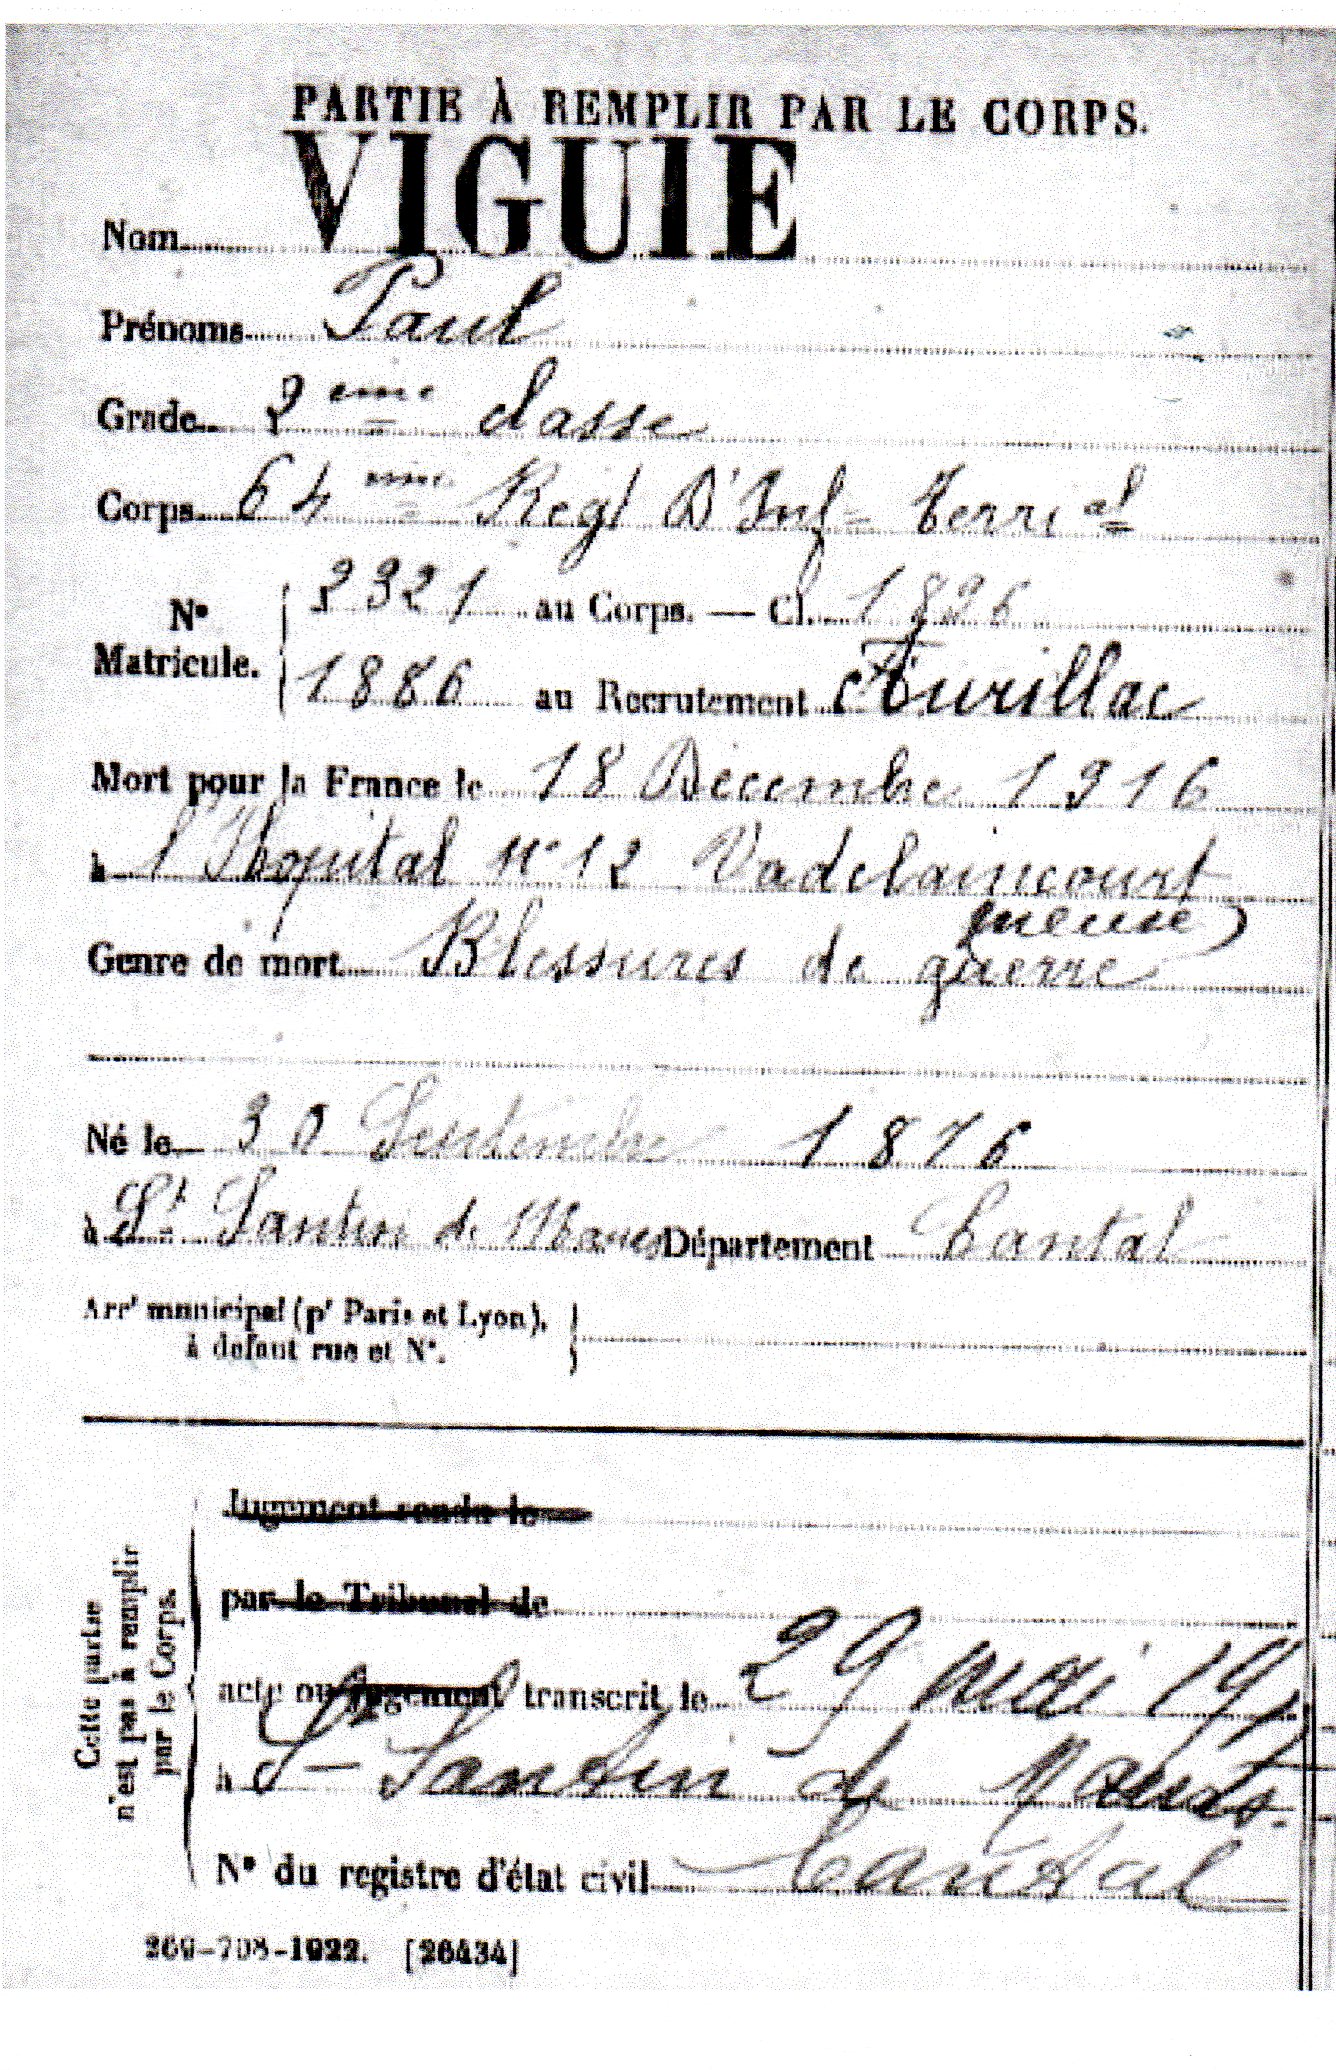 PARTIE À REMPLIR PAR LE CORPS.
Nom VIGUIE
Prénoms Paul
Grade 2eme classe
Corps 64eme Regt D'Inf- Terrial
No Matricule. 2321 au Corps. — Cl. 1896
1886 au Recrutement Aurillac
Mort pour la France le 18 Décembre 1916
à l'Hopital No 12 Vadelaincourt
meuse)
Genre de mort Blessures de guerre
Né le 30 Septembre 1876
à St Santin de Maurs Département Cantal
Arrt municipal (pr Paris et Lyon),
à défaut rue et No.
Jugement rendu le
par le Tribunal de
acte ou jugement transcrit le 29 mai 19
à St Santin de Maurs.
No du registre d'état civil Cantal
Cette partie
n'est pas à remplir
par le Corps.
269-708-1922. [26434]